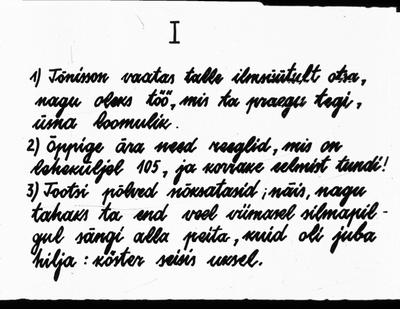 I
1) Tõnisson vaatas talle ilmsüütult otsa,
nagu oleks töö, mis ta praegu tegi,
üsna loomulik.
2) Õppige ära need reeglid, mis on
leheküljel 105, ja korrake eelmist tundi!
3) Tootsi põlved nõksatasid; näis, nagu
tahaks ta end veel viimasel silmapil-
gul sängi alla peita, kuid oli juba
hilja: köster seisis uksel.